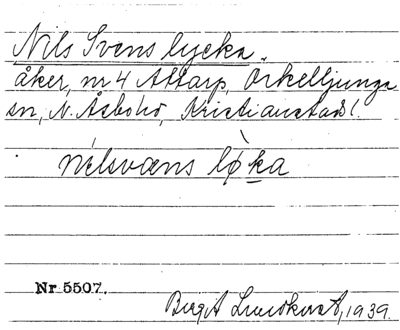 Nils Svens lycka,
åker, nr 4 Åttarp, Örkelljunga
sn, N. Åsbohd, Kristianstads l.
nilsvæns lø̀ka
Nr 5507.
Birgit Lundkvist, 1939.